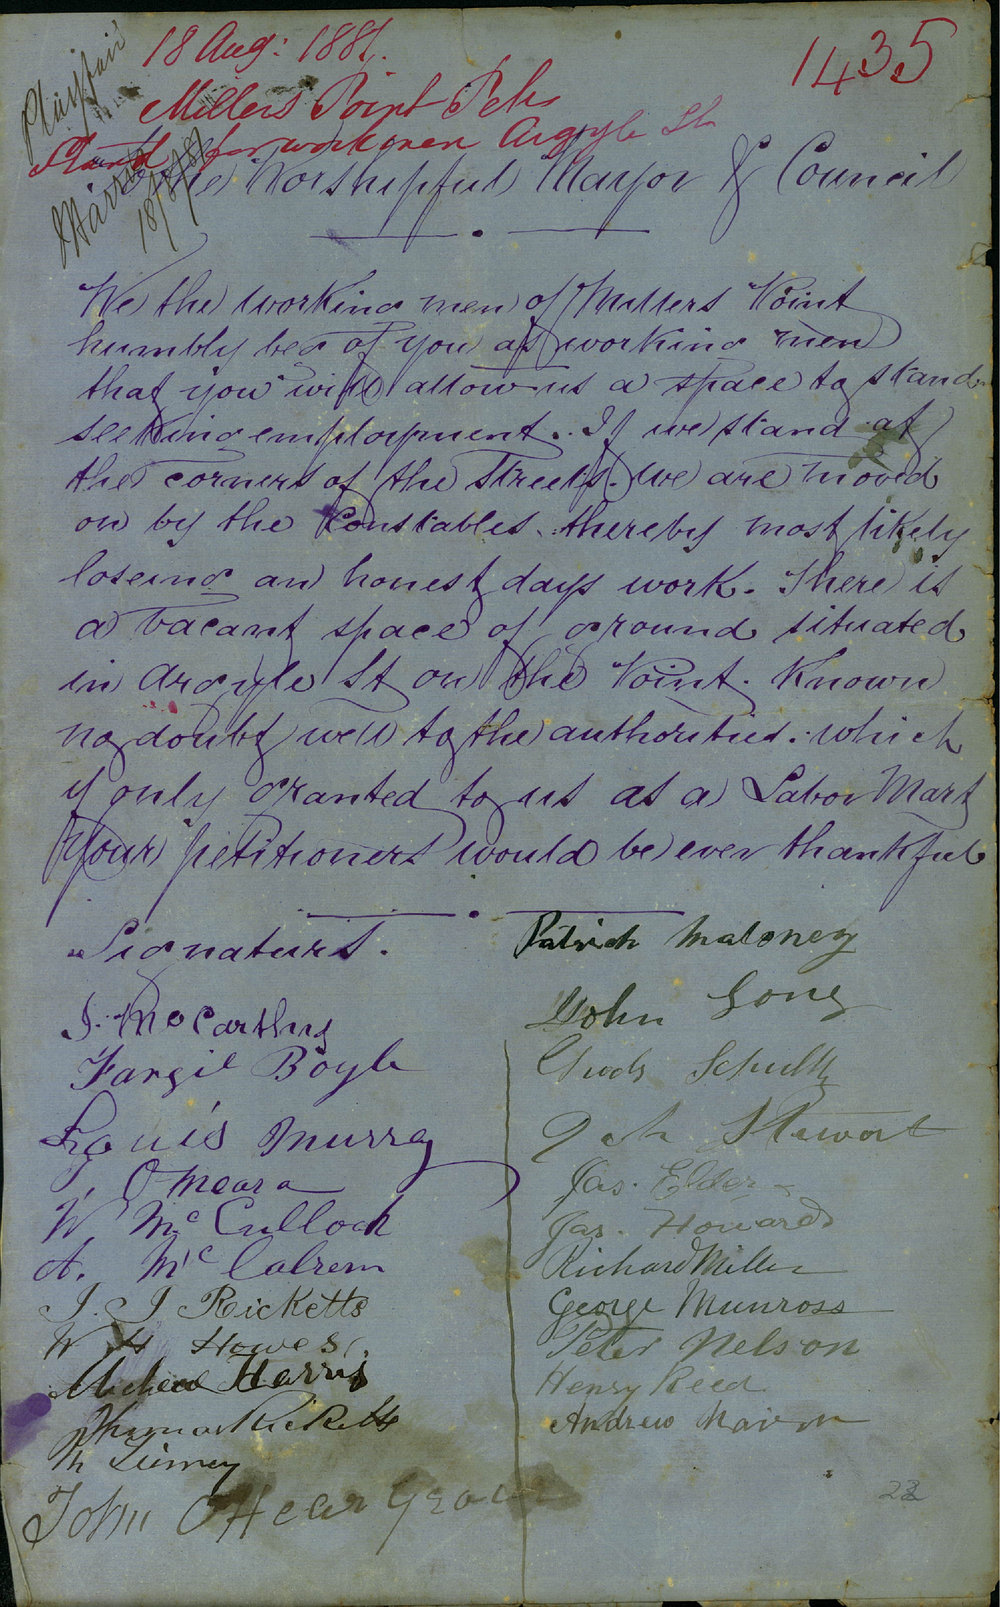 18 Aug: 1881.
1435
Millers Point Ptn
Stand for workmen Argyle St
Playfair
Harris
18/8/81
The Worshipful Mayor & Council
We the working men of Millers Point
humbly beg of you as working men
that you will allow us a space to stand
seeking employment. If we stand at
the corners of the Streets. we are moved
on by the Constables. thereby most likely
loseing an honest days work. There is
a vacant space of ground situated
in Argyle St on the Point. Known
no doubt well to the authorities. which
if only granted to us as a Labor Mart
Your petitioners would be ever thankful
Signatures.
J. McCarthy
Fargil Boyle
Louis Murray
O'Meara
W McCulloch
A. Mc
J. J Ricketts
W H Howes
Michael Harris
Thomas Ricketts
M Tierney
John O'Hear
Patrick Maloney
John Long
Schultz
Jack Stewart
Jas. Elder
Jas. Howard
Richard Miller
George Munross
Peter Nelson
Henry Reed
Andrew
23